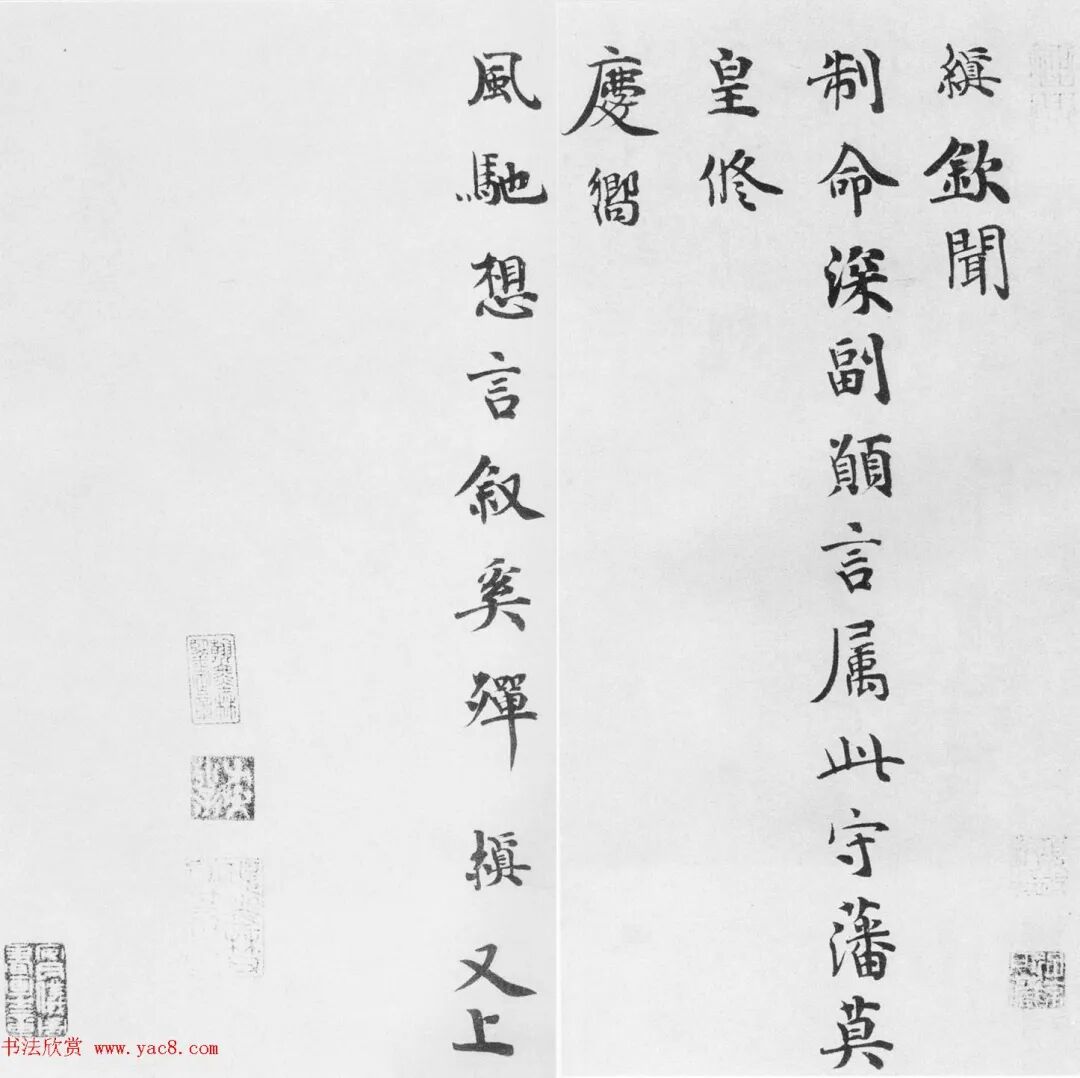 縝欽聞
制命深副願言属此守藩莫
皇修
慶嚮
風馳想言叙奚殫 縝 又上
书法欣赏 www.yac8.com